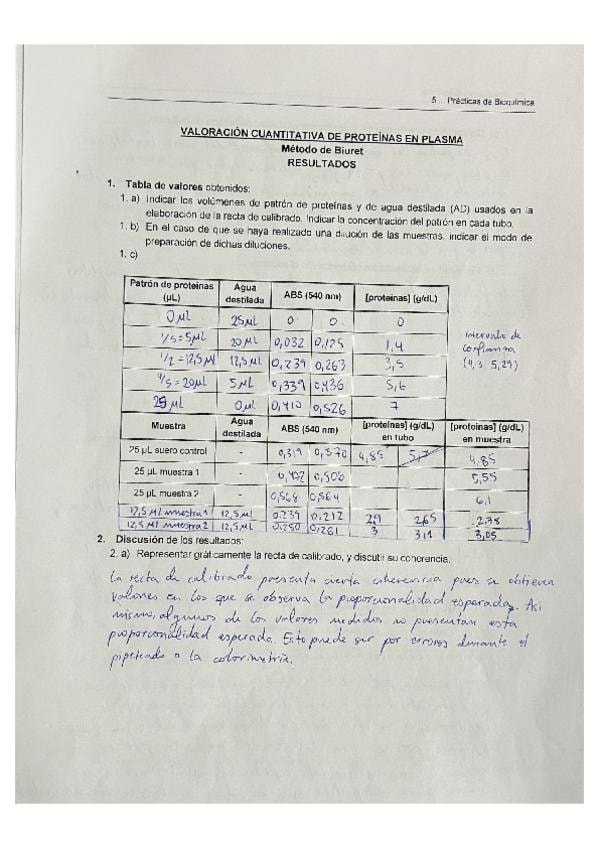 5 Prácticas de Bioquímica
VALORACIÓN CUANTITATIVA DE PROTEÍNAS EN PLASMA
Método de Biuret
RESULTADOS
1. Tabla de valores obtenidos:
1. a) Indicar los volúmenes de patrón de proteínas y de agua destilada (AD) usados en la
elaboración de la recta de calibrado. Indicar la concentración del patrón en cada tubo.
1. b) En el caso de que se haya realizado una dilución de las muestras, indicar el modo de
preparación de dichas diluciones.
1. c)
Patrón de proteínas (µL) Agua destilada ABS (540 nm) [proteínas] (g/dL)
0 µL 25 µL 0 0 0
1/5 = 5 µL 20 µL 0,032 0,125 1,4
1/2 = 12,5 µl 12,5 µL 0,239 0,263 3,5
4/5 = 20 µL 5 µL 0,339 0,436 5,6
25 µL 0 µL 0,410 0,526 7
intervalo de
confianza
(4,3 5,29)
Muestra Agua destilada ABS (540 nm) [proteínas] (g/dL) en tubo [proteínas] (g/dL) en muestra
25 µL suero control - 0,319 0,370 4,85 4,85
25 µL muestra 1 - 0,506 5,55
25 µL muestra 2 - 0,568 0,564 6,1
12,5 µl muestra 1 12,5 µL 0,239 0,212 2,9 2,65 2,78
12,5 µl muestra 2 12,5 µL 0,250 0,261 3 3,1 3,05
2. Discusión de los resultados:
2. a) Representar gráficamente la recta de calibrado, y discutir su coherencia.
La recta de calibrado presenta cierta coherencia pues se obtienen
valores en los que se observa la proporcionalidad esperada. Así
mismo, algunos de los valores medidos no presentan esta
proporcionalidad esperada. Esto puede ser por errores durante el
pipeteado o la colorimetría.